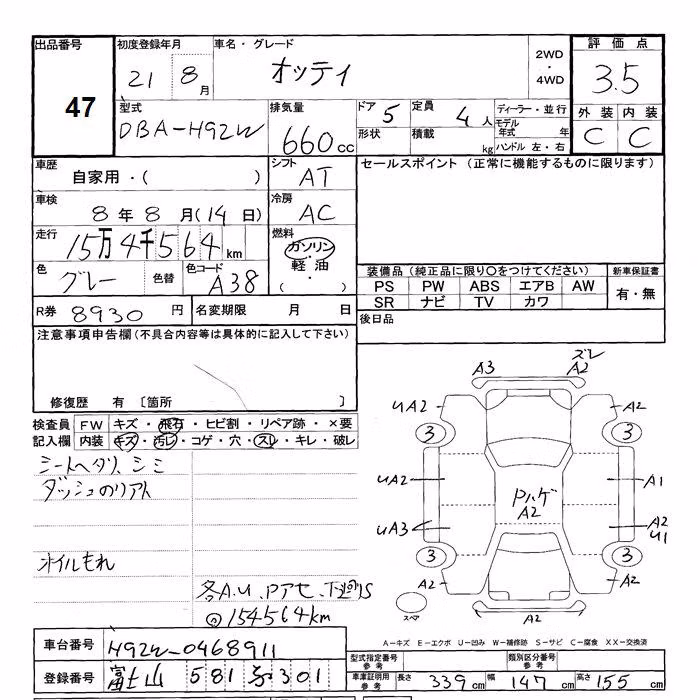 出品番号 47
初度登録年月 21 8月
車名・グレード オッティ
2WD・4WD
評価点 3.5
外装 C 内装 C
型式 DBA-H92W
排気量 660cc
ドア 5 定員 4人
形状 積載 kg
ディーラー・並行
モデル年式 年
ハンドル 左・右
車歴 自家用・( )
シフト AT
車検 8年8月(14日)
冷房 AC
走行 15万4千564km
燃料 ガソリン・軽油・( )
色 グレー 色替 色コード A38
R券 8930円 名変期限 月 日
セールスポイント (正常に機能するものに限ります)
装備品 (純正品に限り○をつけてください)
PS PW ABS エアB AW
SR ナビ TV カワ
新車保証書 有・無
後日品
注意事項申告欄(不具合内容等は具体的に記入して下さい)
修復歴 有 [箇所 ]
検査員記入欄 FW キズ・飛石・ヒビ割・リペア跡・×要
内装 キズ・汚レ・コゲ・穴・スレ・キレ・破レ
シートヘタリ、シミ
ダッシュのリアト
オイルもれ
各A.U、Pアセ、下廻りS
@154564km
A3 ズレ A2
UA2 A2
3 3
UA2 A1
Pハゲ A2
UA3 A2 U1
3 3
A2 A2
スペア
A2
A-キズ E-エクボ U-凹み W-補修跡 S-サビ C-腐食 XX-交換済
車台番号 H92W-0468911
登録番号 富士山 581 301
型式指定番号 参考 類別区分番号 参考
車庫証明用 参考 長さ 339cm 幅 147cm 高さ 155cm